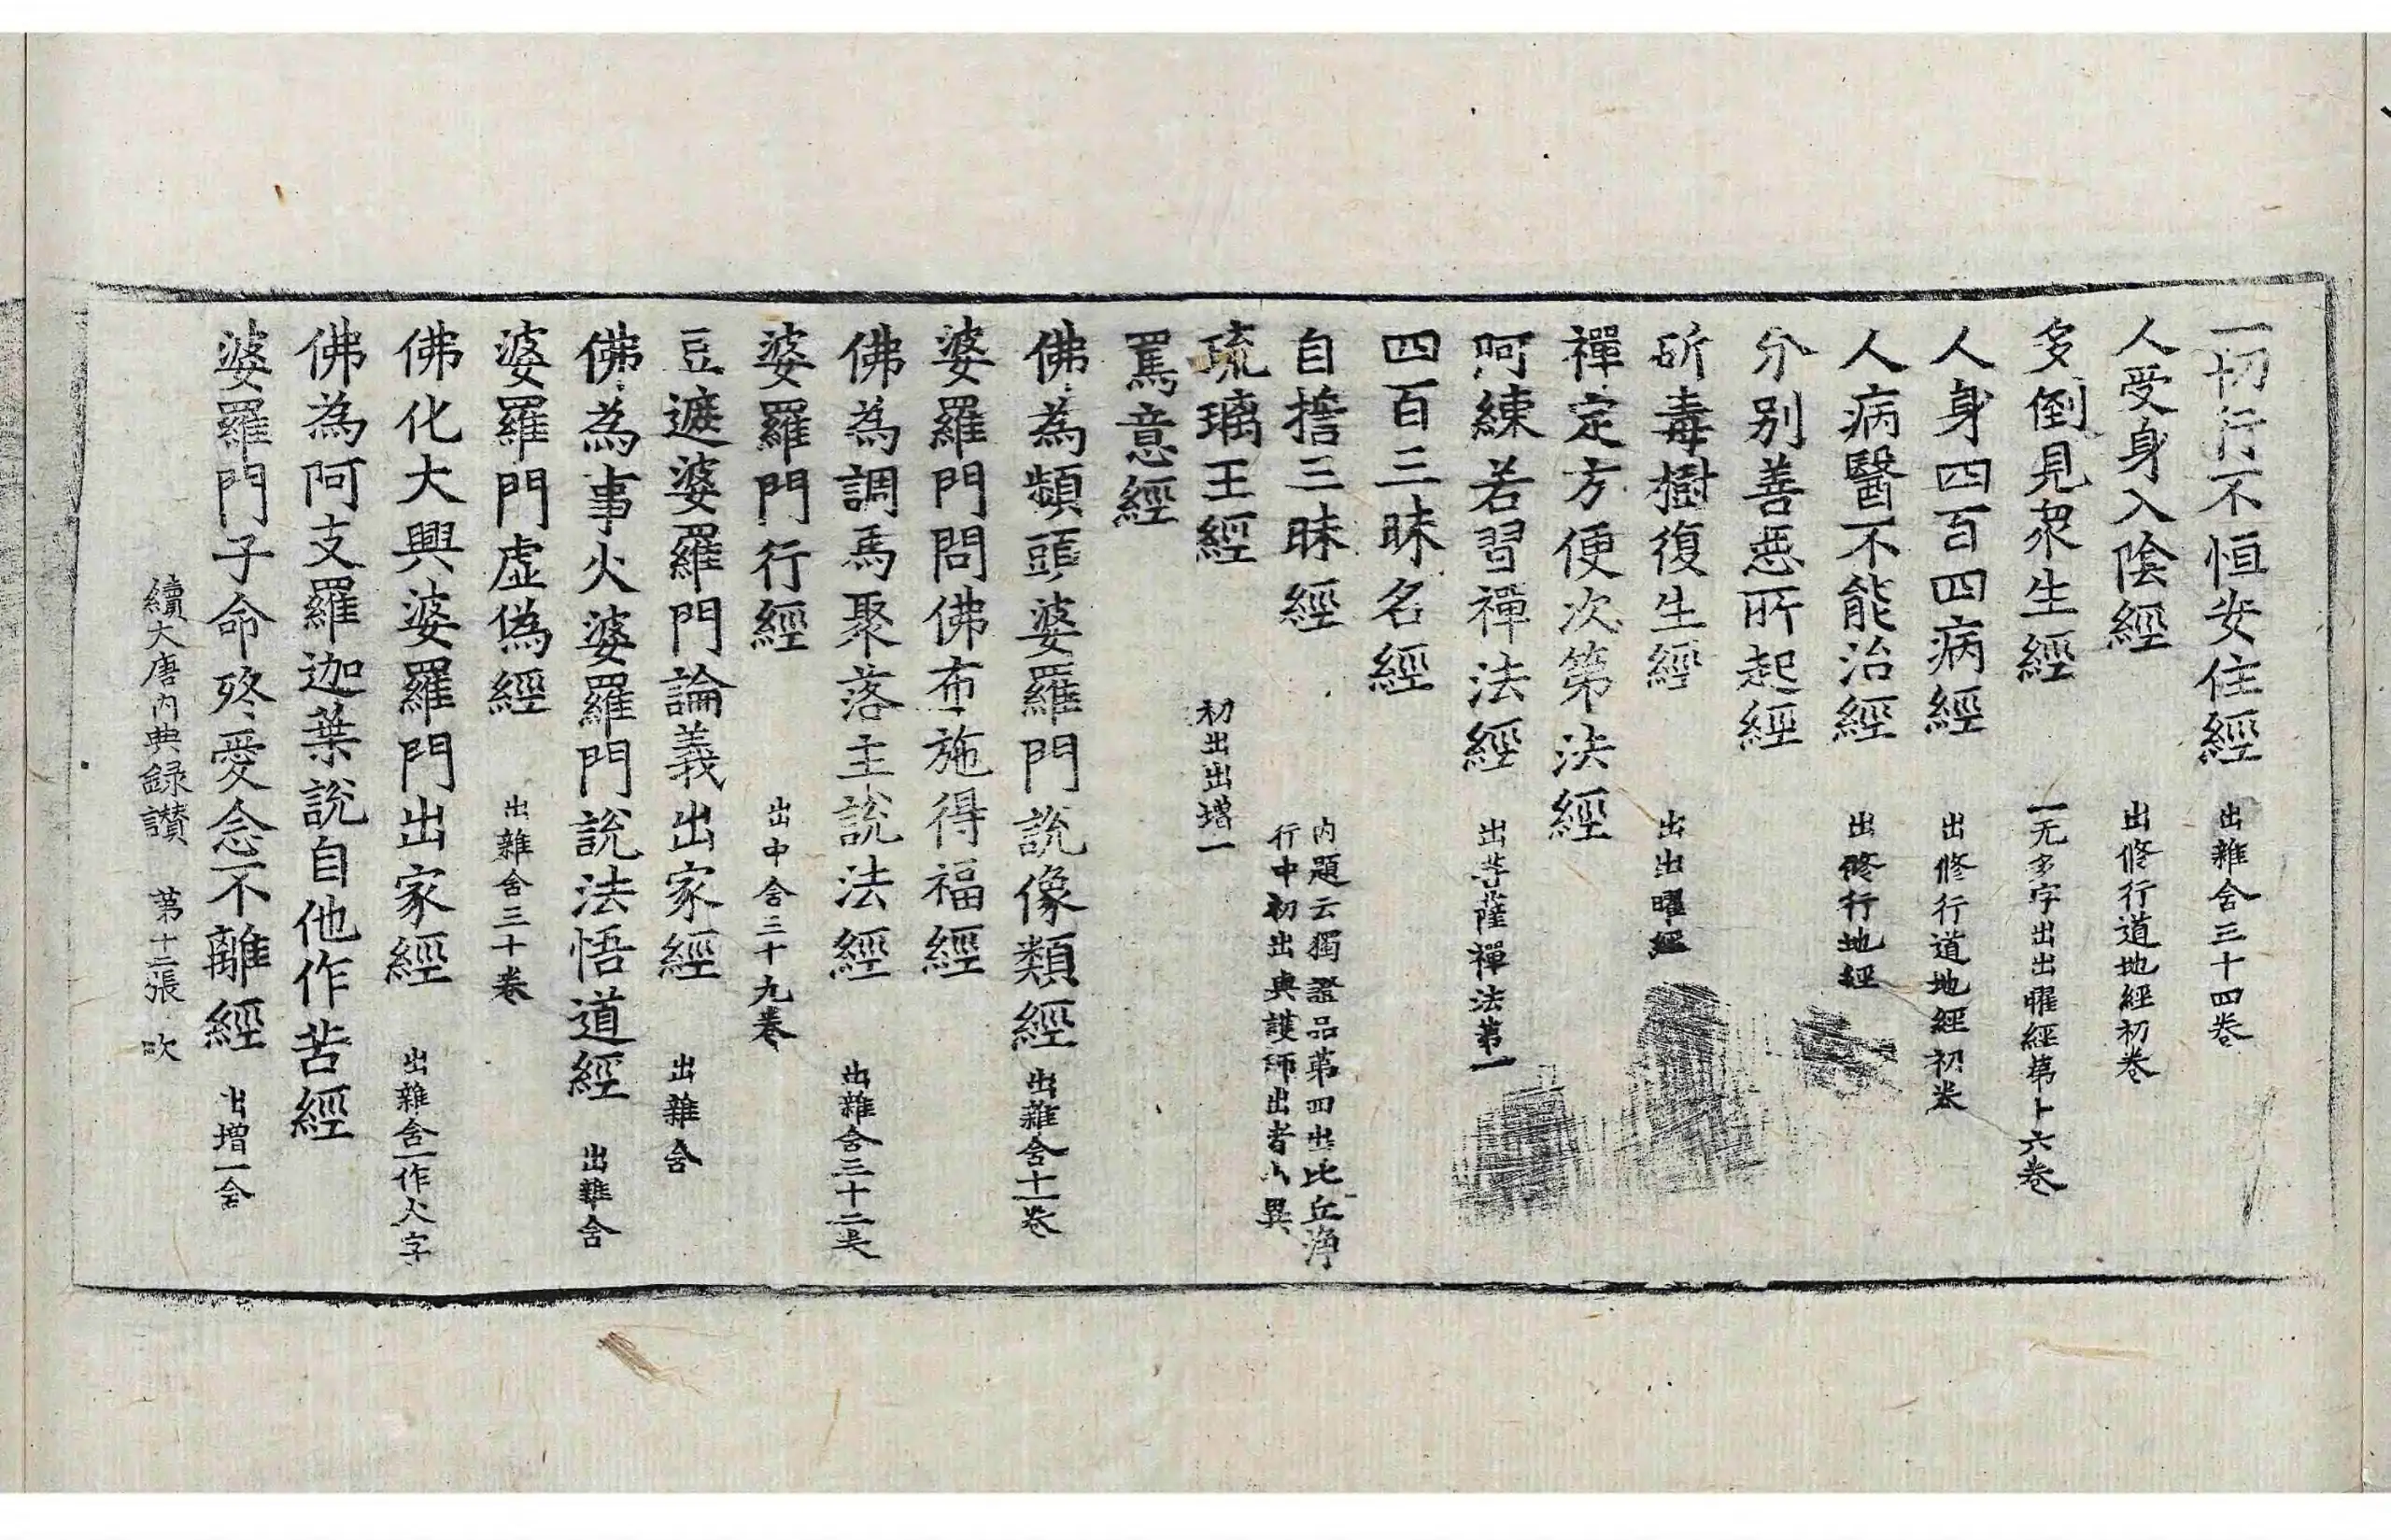 一切行不恒安住經 出雜含三十四卷
人受身入陰經 出修行道地經初卷
多倒見衆生經 一无多字出出曜經第十六卷
人身四百四病經 出修行道地經初卷
人病醫不能治經 出修行地經
分別善惡所起經
斫毒樹復生經 出出曜經
禪定方便次第法經
呵練若習禪法經 出菩薩禪法第一
四百三昧名經
自誓三昧經 內題云獨證品第四出比丘淨
行中初出與護師出者小異
琉璃王經 初出出增一
罵意經
佛為頻頭婆羅門說像類經 出雜含十一卷
婆羅門問佛布施得福經
佛為調馬聚落主說法經 出雜含三十二卷
婆羅門行經 出中含三十九卷
豆遮婆羅門論義出家經 出雜含
佛為事火婆羅門說法悟道經 出雜含
婆羅門虛偽經 出雜含三十卷
佛化大興婆羅門出家經 出雜含一作火字
佛為阿支羅迦葉說自他作苦經
婆羅門子命終愛念不離經 出增一含
續大唐內典錄讃 第十二張 吹